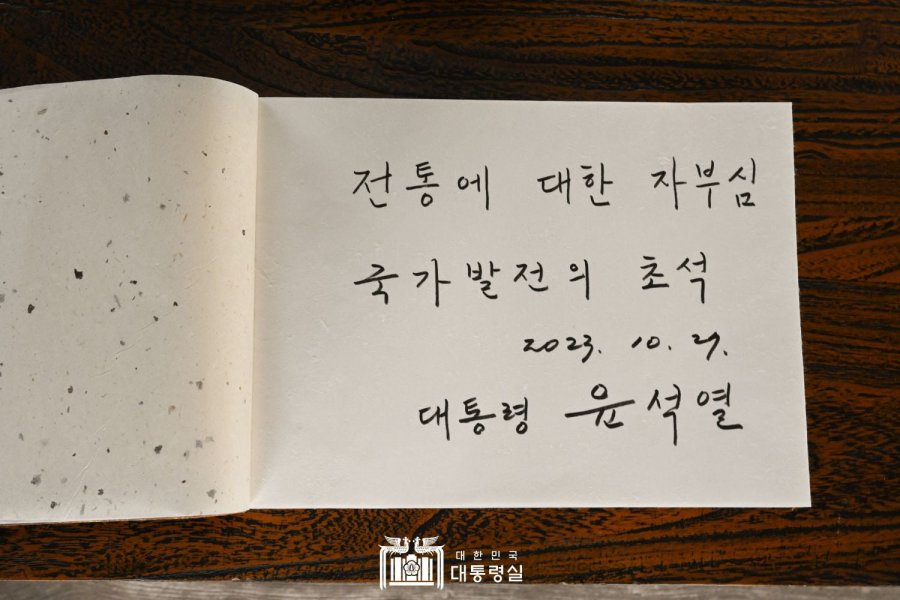 전통에 대한 자부심
국가발전의 초석
2023. 10. 27.
대통령 윤석열
대한민국
대통령실